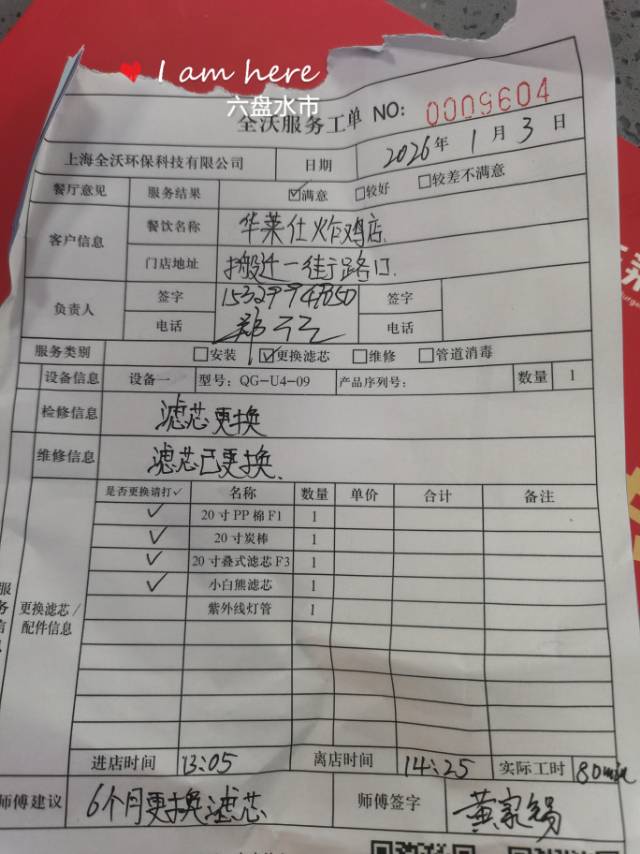 I am here
六盘水市
全沃服务工单 NO: 0009604
上海全沃环保科技有限公司 日期 2026年1月3日
餐厅意见 服务结果 ☑满意 □较好 □较差不满意
客户信息 餐饮名称 华莱仕炸鸡店
门店地址 搬迁一街路口
负责人 签字 签字
电话 电话
服务类别 □安装 ☑更换滤芯 □维修 □管道消毒
设备信息 设备一 型号: QG-U4-09 产品序列号: 数量 1
检修信息 滤芯更换
维修信息 滤芯已更换
是否更换请打✓ 名称 数量 单价 合计 备注
✓ 20寸PP棉F1 1
✓ 20寸炭棒 1
✓ 20寸叠式滤芯F3 1
✓ 小白熊滤芯 1
紫外线灯管 1
更换滤芯/
配件信息
进店时间 13:05 离店时间 14:25 实际工时 80min
师傅建议 6个月更换滤芯 师傅签字 黄家锡